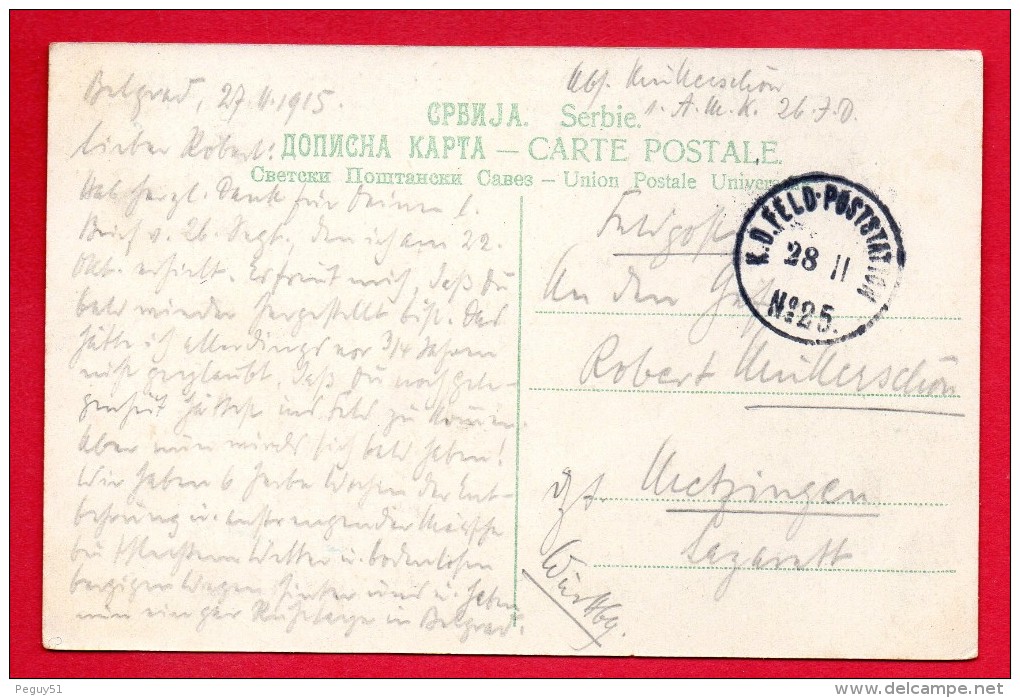 Belgrad, 27.11.1915.
Abs. Müllerschön
1. A.M.K. 26.J.D.
СРБИЈА. Serbie.
ДОПИСНА КАРТА — CARTE POSTALE.
Светски Поштански Савез – Union Postale Univer
Lieber Robert!
Hab herzl. Dank für Deinen l.
Brief v. 26. Sept., den ich am 22.
Okt. erhielt. Es freut mich, daß du
bald wieder hergestellt bist. Das
hätte ich allerdings vor 3/4 Jahren
nicht geglaubt, daß Du noch Gele-
genheit hättest ins Feld zu kommen.
Aber nun wirds sich bald heben!
Wir haben 6 herbe Wochen der Ent-
behrung u. anstrengender Märsche
bei schlechtem Wetter u. bodenlosen
bergigen Wegen hinter uns u. haben
nun einige Ruhetage in Belgrad.
Feldpost
An den
Robert Müllerschön
zt. Metzingen
Lazarett
Württbg.
K.D.FELD-POSTSTATION
28 11
No 25.
Peguy51
delcampe.net